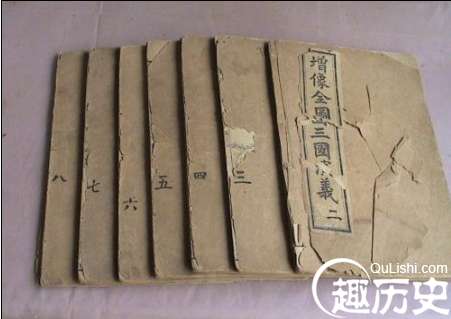 增像全圖三國演義 二
三
四
五
六
七
八
QuLishi.com
趣历史